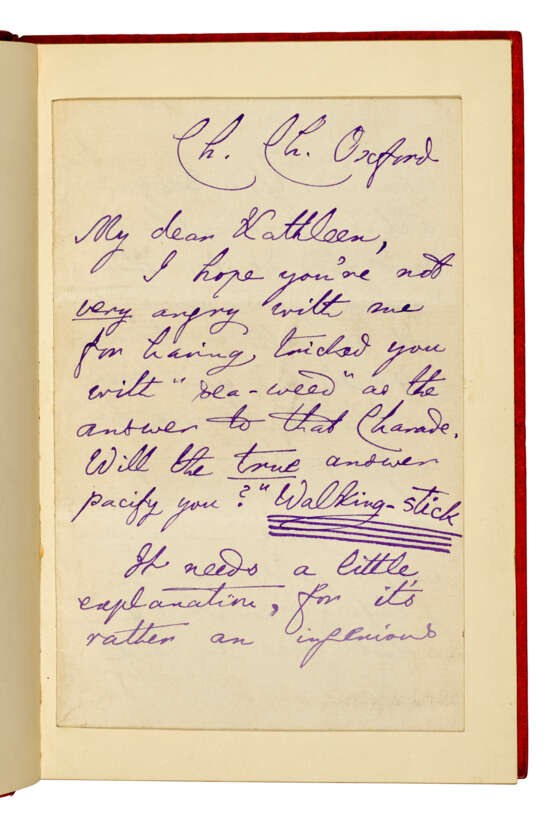 Ch. Ch. Oxford
My dear Kathleen,
I hope you're not
very angry with me
for having tricked you
with "sea-weed" as the
answer to that Charade.
Will the true answer
pacify you? "Walking-stick
It needs a little
explanation, for it's
rather an ingenious